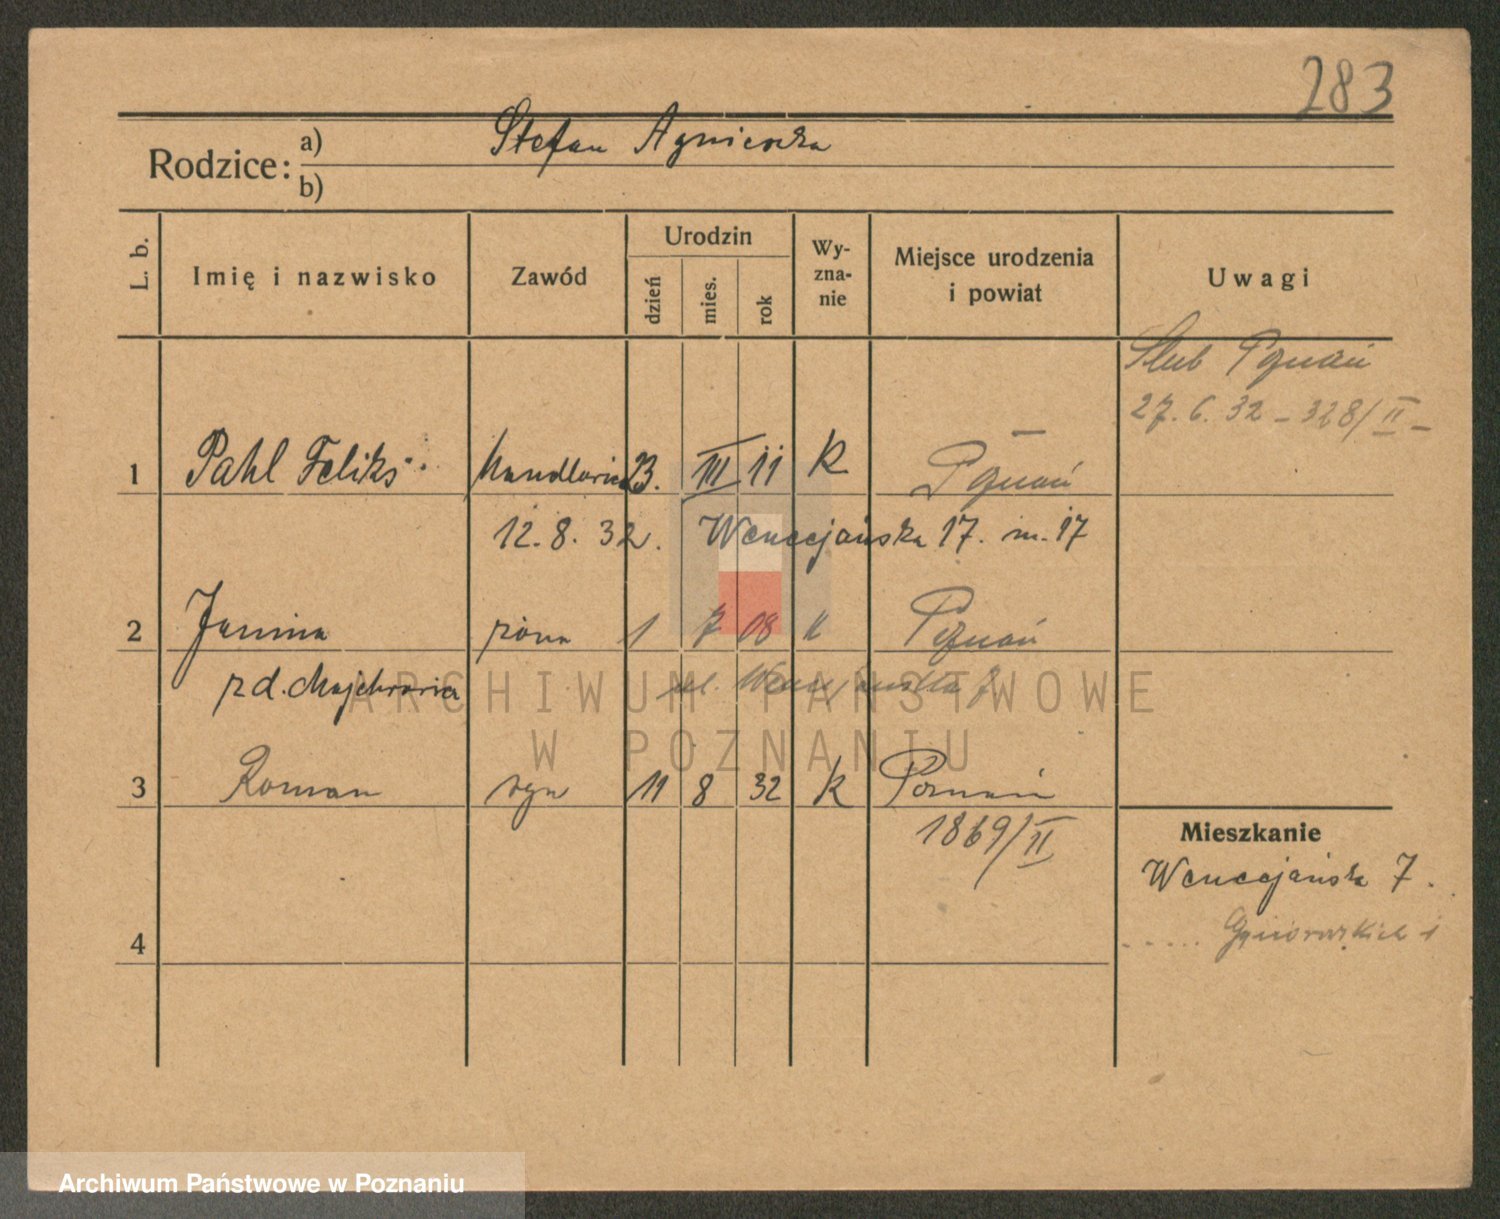 283
Rodzice: a) Stefan Agnieszka
b)
L. b.
Imię i nazwisko
Zawód
Urodzin
dzień
mies.
rok
Wy-
zna-
nie
Miejsce urodzenia
i powiat
Uwagi
Ślub Poznań
27. 6. 32 – 328/II –
1 Pahl Feliks handlowiec 23. III 11 k Poznań
12. 8. 32. Wenecjańska 17. m. 17
2 Janina żona 1 7 08 k Poznań
zd. ul. Wenecjańska 7
3 Roman syn 11 8 32 k Poznań
1869/II
Mieszkanie
Wenecjańska 7.
4
ARCHIWUM PAŃSTWOWE
W POZNANIU
Archiwum Państwowe w Poznaniu